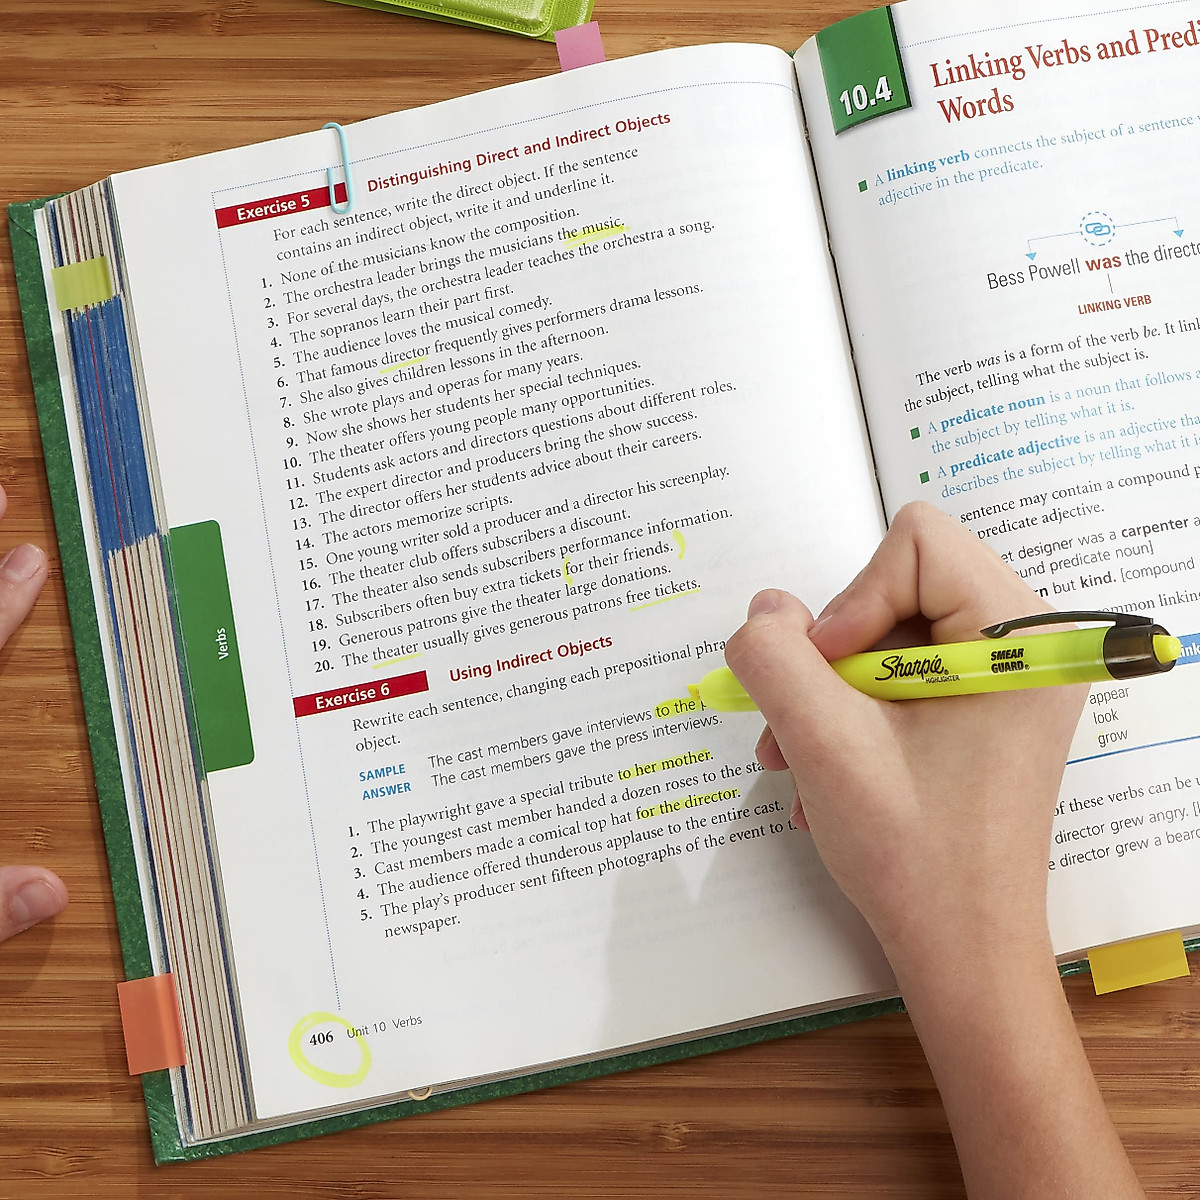 Exercise 5 Distinguishing Direct and Indirect Objects
For each sentence, write the direct object. If the sentence
contains an indirect object, write it and underline it.
1. None of the musicians know the composition.
2. The orchestra leader brings the musicians the music.
3. For several days, the orchestra leader teaches the orchestra a song.
4. The sopranos learn their part first.
5. The audience loves the musical comedy.
6. That famous director frequently gives performers drama lessons.
7. She also gives children lessons in the afternoon.
8. She wrote plays and operas for many years.
9. Now she shows her students her special techniques.
10. The theater offers young people many opportunities.
11. Students ask actors and directors questions about different roles.
12. The expert director and producers bring the show success.
13. The director offers her students advice about their careers.
14. The actors memorize scripts.
15. One young writer sold a producer and a director his screenplay.
16. The theater club offers subscribers a discount.
17. The theater also sends subscribers performance information.
18. Subscribers often buy extra tickets for their friends.
19. Generous patrons give the theater large donations.
20. The theater usually gives generous patrons free tickets.
Exercise 6 Using Indirect Objects
Rewrite each sentence, changing each prepositional
object.
SAMPLE The cast members gave interviews to the
ANSWER The cast members gave the press interviews.
1. The playwright gave a special tribute to her mother.
2. The youngest cast member handed a dozen roses to the
3. Cast members made a comical top hat for the director.
4. The audience offered thunderous applause to the entire cast.
5. The play's producer sent fifteen photographs of the event to
newspaper.
406 Unit 10 Verbs
Verbs
10.4 Linking Verbs and
Words
A linking verb connects the subject of a sentence
adjective in the predicate.
Bess Powell was the
LINKING VERB
The verb was is a form of the verb be. It
the subject, telling what the subject is.
A predicate noun is a noun that follows
the subject by telling what it is.
A predicate adjective is an adjective
describes the subject by telling what it
sentence may contain a compound
predicate adjective.
designer was a carpenter
predicate noun]
but kind. [compound
linking
appear
look
grow
of these verbs can be
director grew angry.
director grew a
Sharpie
HIGHLIGHTER
SMEAR
GUARD